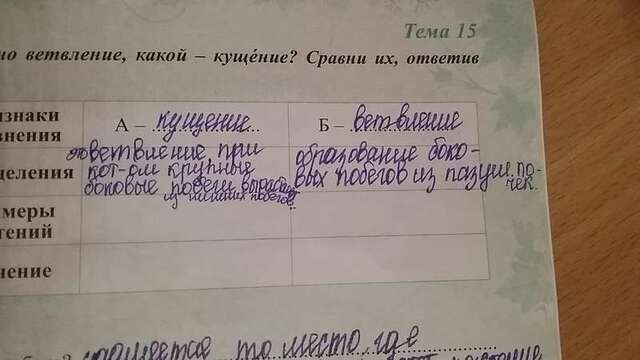 Тема 15
но ветвление, какой – кущéние? Сравни их, ответив
изнаки
внения
А – кущение
Б – ветвление
еделения
это ветвление при
кот-ом крупные
боковые побеги вырастают
из нижних побегов
образование боко-
вых побегов из пазуш. по-
чек.
меры
тений
чение
место, где